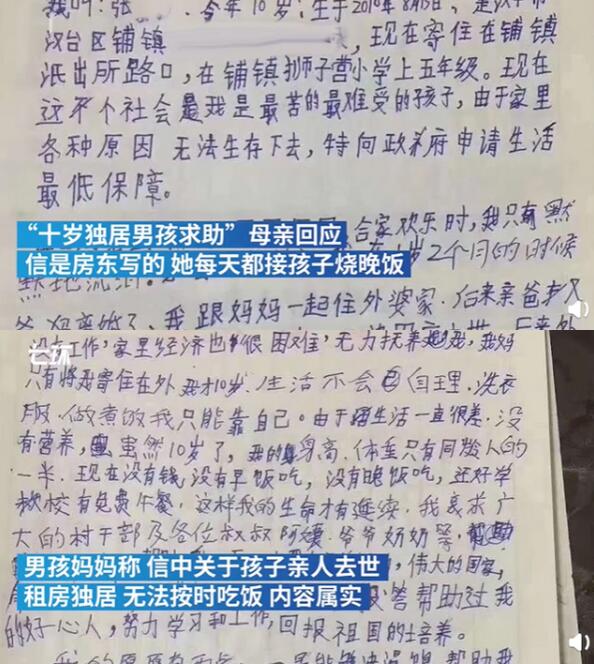 我叫:张
今年10岁,生于2010年8月13日,是汉中市
汉台区铺镇
现在寄住在铺镇
派出所路口,在铺镇狮子营小学上五年级。现在
这个社会是我是最苦的最难受的孩子,由于家里
各种原因 无法生存下去,特向政府申请生活
最低保障。
合家欢乐时,我只有默
“十岁独居男孩求助”母亲回应
岁2个月的时候
信是房东写的 她每天都接孩子烧晚饭
我跟妈妈一起住外婆家.后来亲爸
没有工作,家里经济也很困难,无力抚养我,我妈
只有将我寄住在外 我才10岁.生活不会自理.洗衣
服.做煮饭我只能靠自己。由于生活一直很差.没
有营养,虽然10岁了,我的身高.体重只有同龄人的
一半.现在没有钱,没有早饭吃,没有晚饭吃,还好学
校有免费午餐,这样我的生命才有连续.我哀求广
大的村干部及各位叔叔阿姨.爷爷奶奶等,帮助
男孩妈妈称 信中关于孩子亲人去世
伟大的国家,
租房独居 无法按时吃饭 内容属实
帮助过我
的好心人,努力学习和工作,回报祖国的培养。